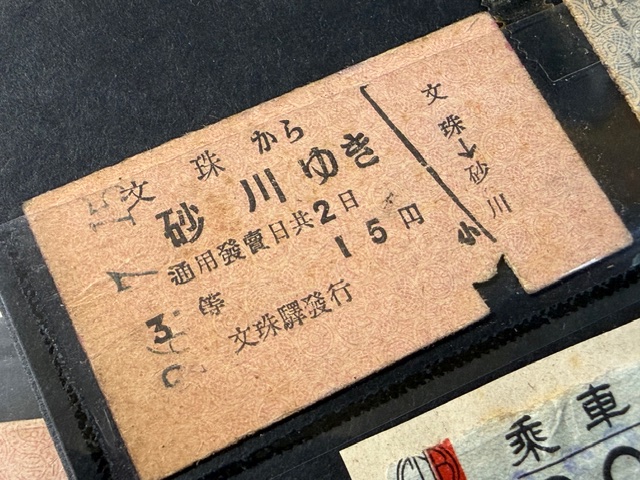 文珠から
砂川ゆき
通用發賣日共2日
15円
3等
文珠驛發行
文珠→砂川
小
乘車